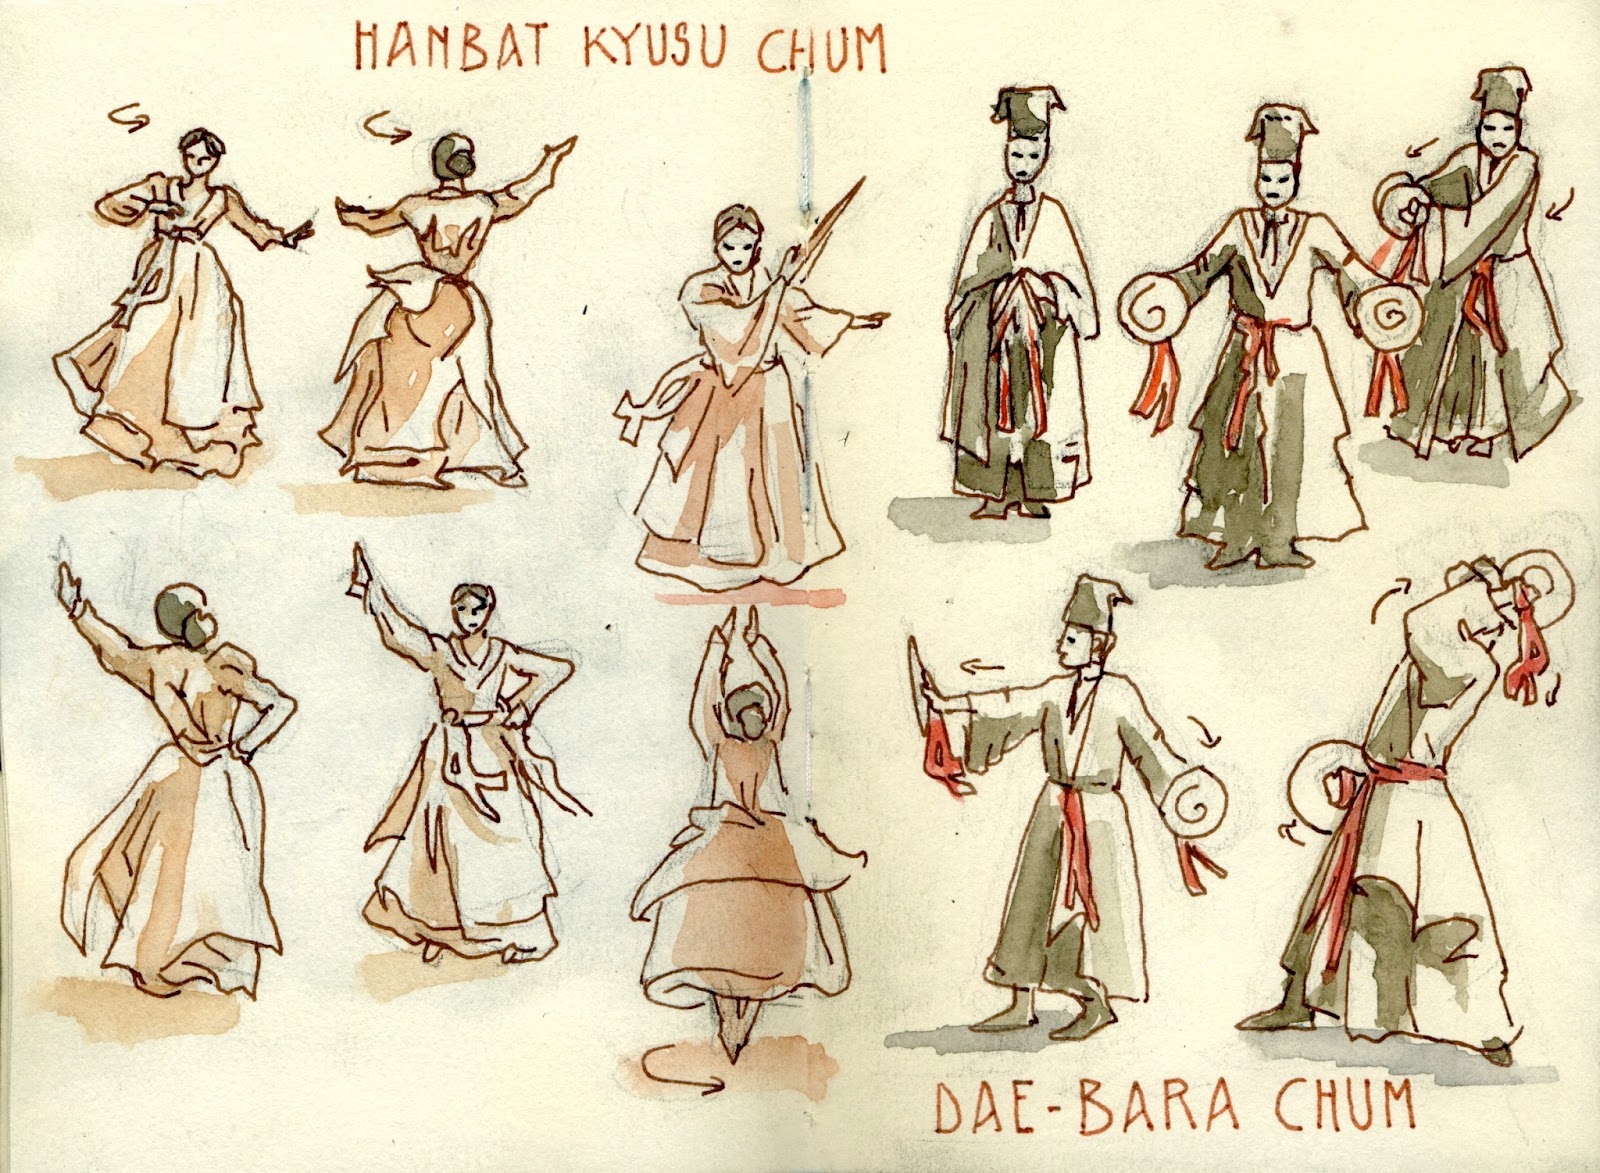 HANBAT KYUSU CHUM
DAE-BARA CHUM